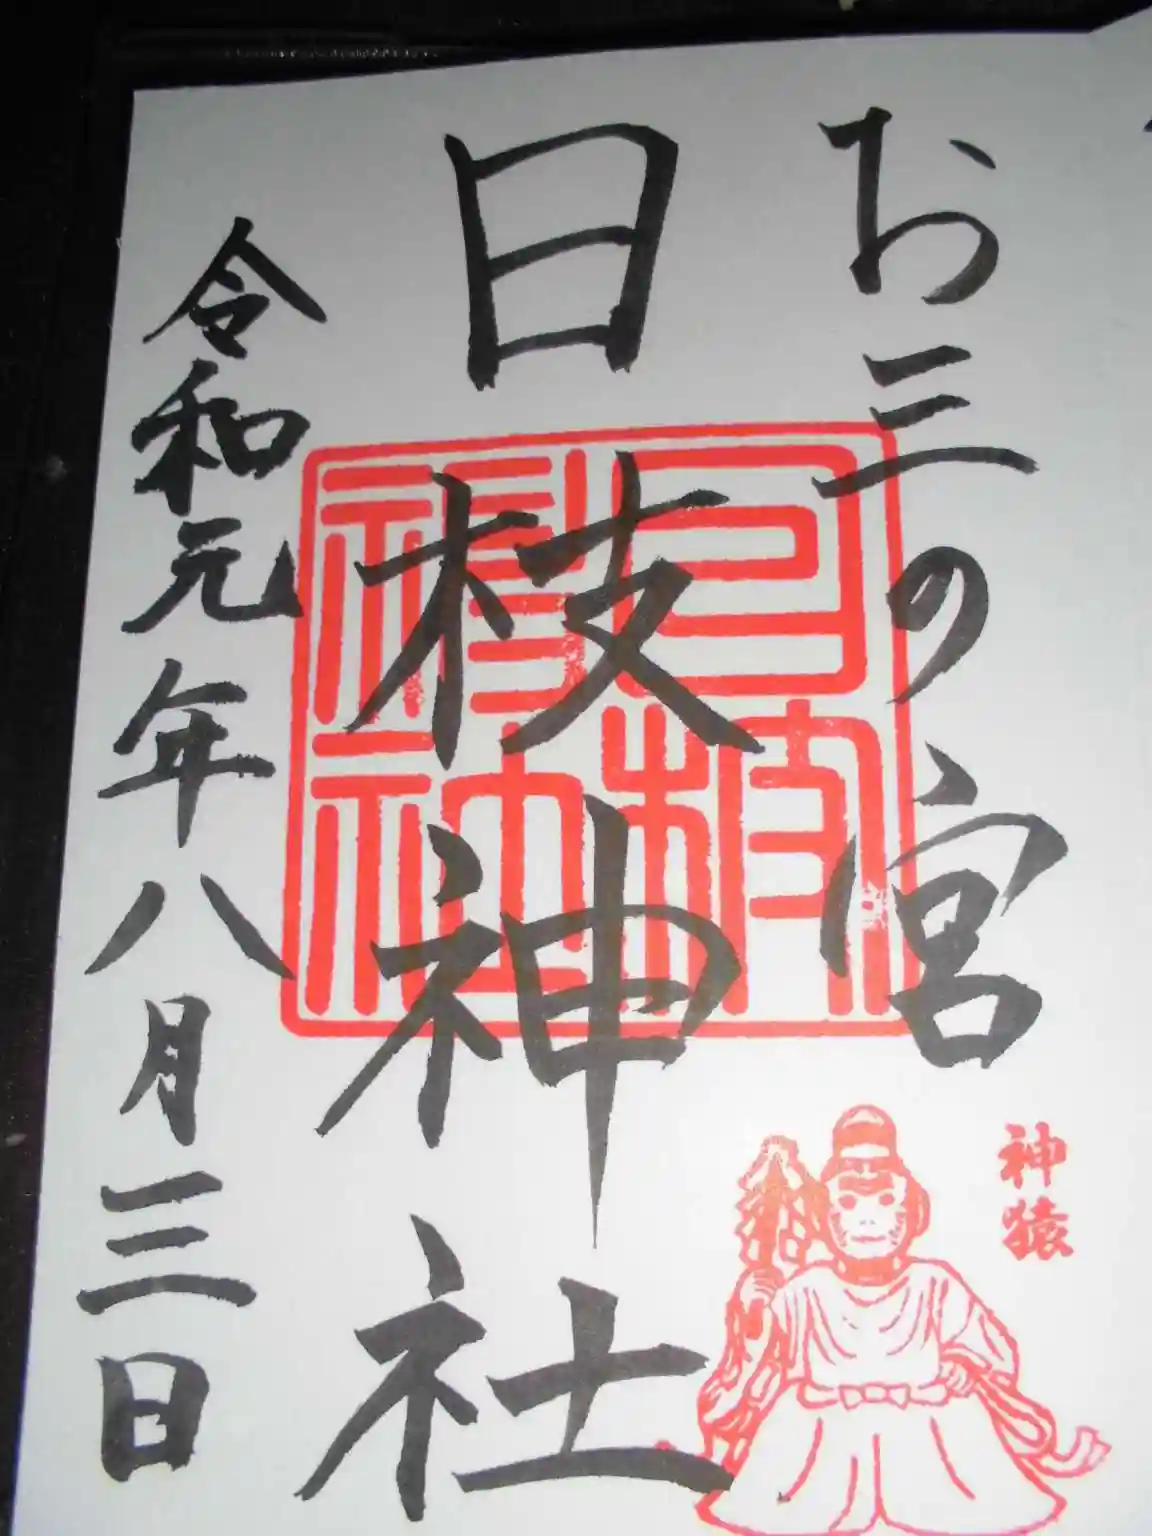 お三の宮
日枝神社
令和元年八月三日
日枝神社
神猿